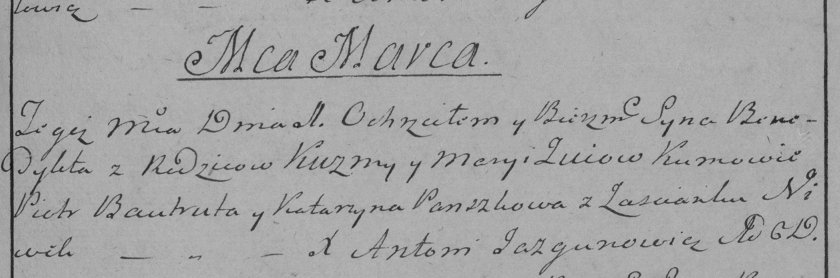 Mca Marca.
Tegoż mca Dnia 11. Ochrzciłem y Bierzmc Syna Bene-
dykta z Rodzicow Kuzmy y Maryi Zuiow Kumowie
Piotr Bautruta y Katarzyna Panszkowa z Zascianku Ni
wek — „ — X Antoni Jazgunowicz